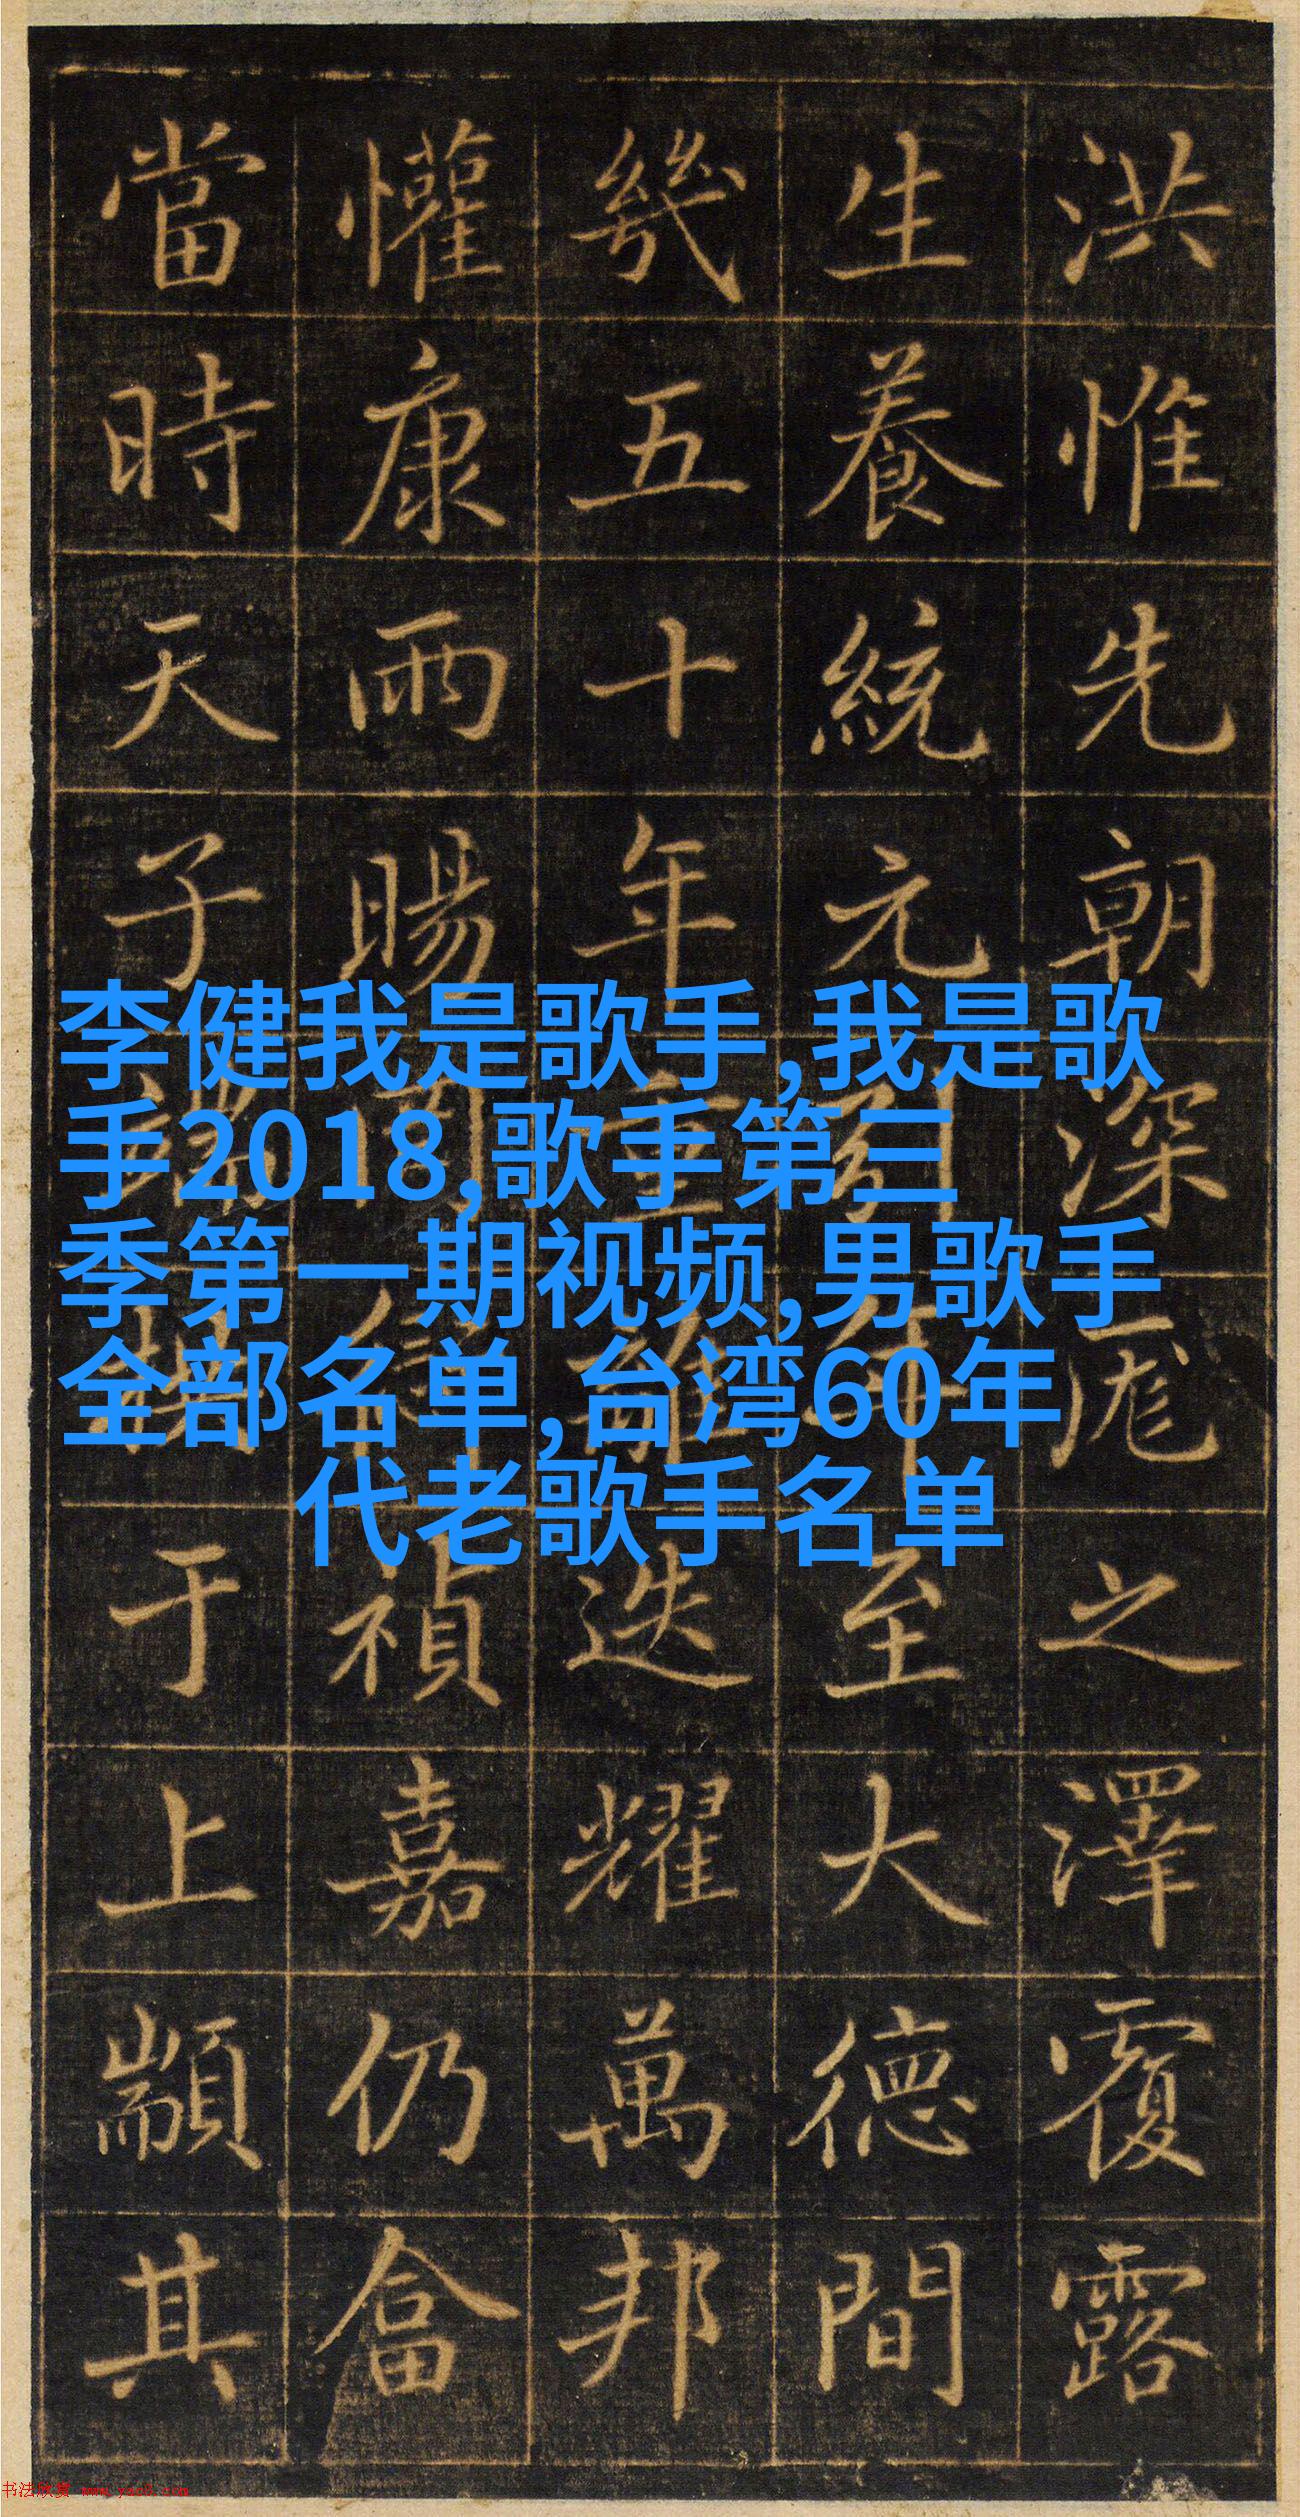 洪惟先朝深厖之澤覆露
生養統元引年至大德間
幾五十年重離迭耀萬邦
懽康雨暘禎嘉仍畬
當時天子于上顓其
李健我是歌手,我是歌
手2018,歌手第三
季第一期视频,男歌手
全部名单,台湾60年
代老歌手名单
书法欣赏 www.yac8.com